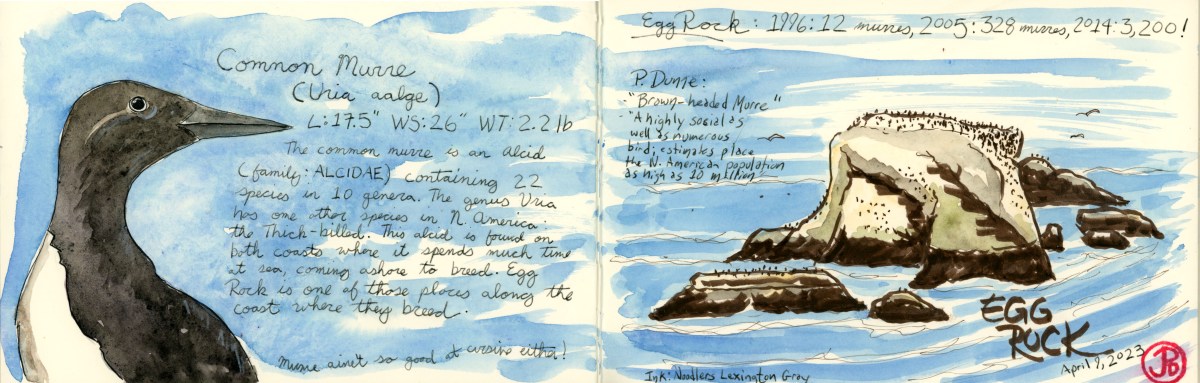 Common Murre
(Uria aalge)
L: 17.5" WS: 26" WT: 2.2 lb
The common murre is an Alcid
(family: ALCIDAE) containing 22
species in 10 genera. The genus Uria
has one other species in N. America:
the Thick-billed. This alcid is found on
both coasts where it spends much time
at sea, coming ashore to breed. Egg
Rock is one of those places along the
coast where they breed.
ain't so good at cursive either!
Egg Rock: 1996: 12 murres, 2005: 328 murres, 2014: 3,200!
P. Dunne:
"Brown-headed Murre"
"A highly social as
well as numerous
bird; estimates place
the N. American population
as high as 20 million
EGG
ROCK
April 9, 2023
Ink: Noodlers Lexington Gray